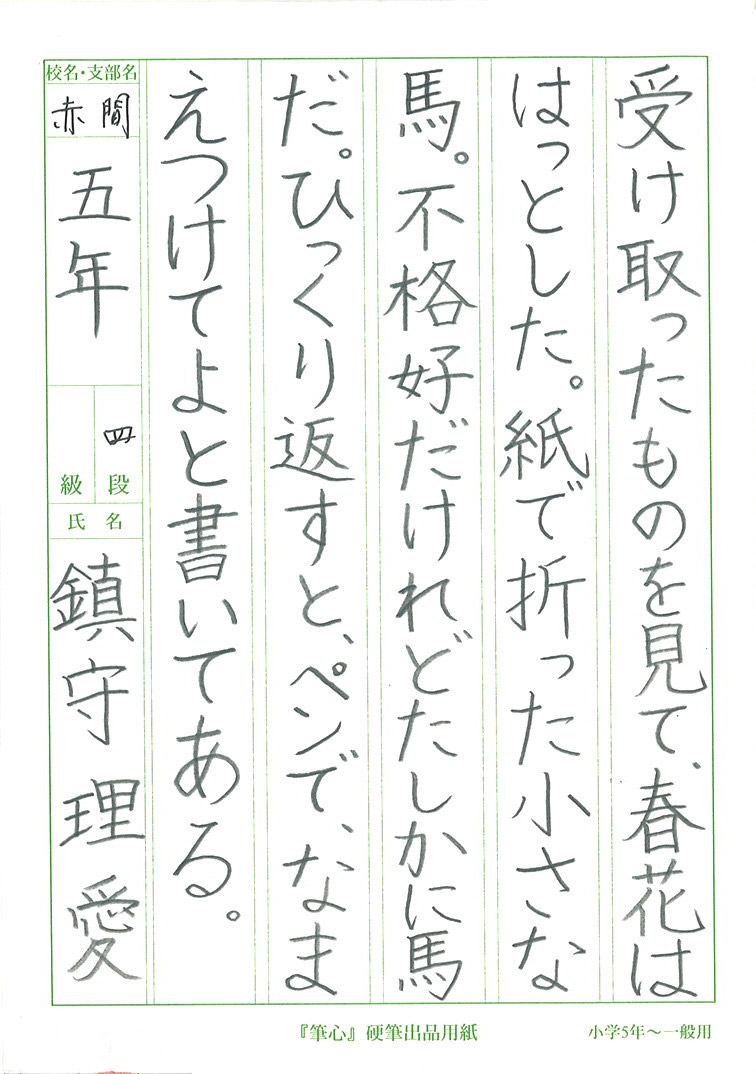 受け取ったものを見て、春花は
はっとした。紙で折った小さな
馬。不格好だけれどたしかに馬
だ。ひっくり返すと、ペンで、なま
えつけてよと書いてある。
校名・支部名
赤間
五年
四段
級
氏名
鎮守理愛
『筆心』硬筆出品用紙
小学5年～一般用